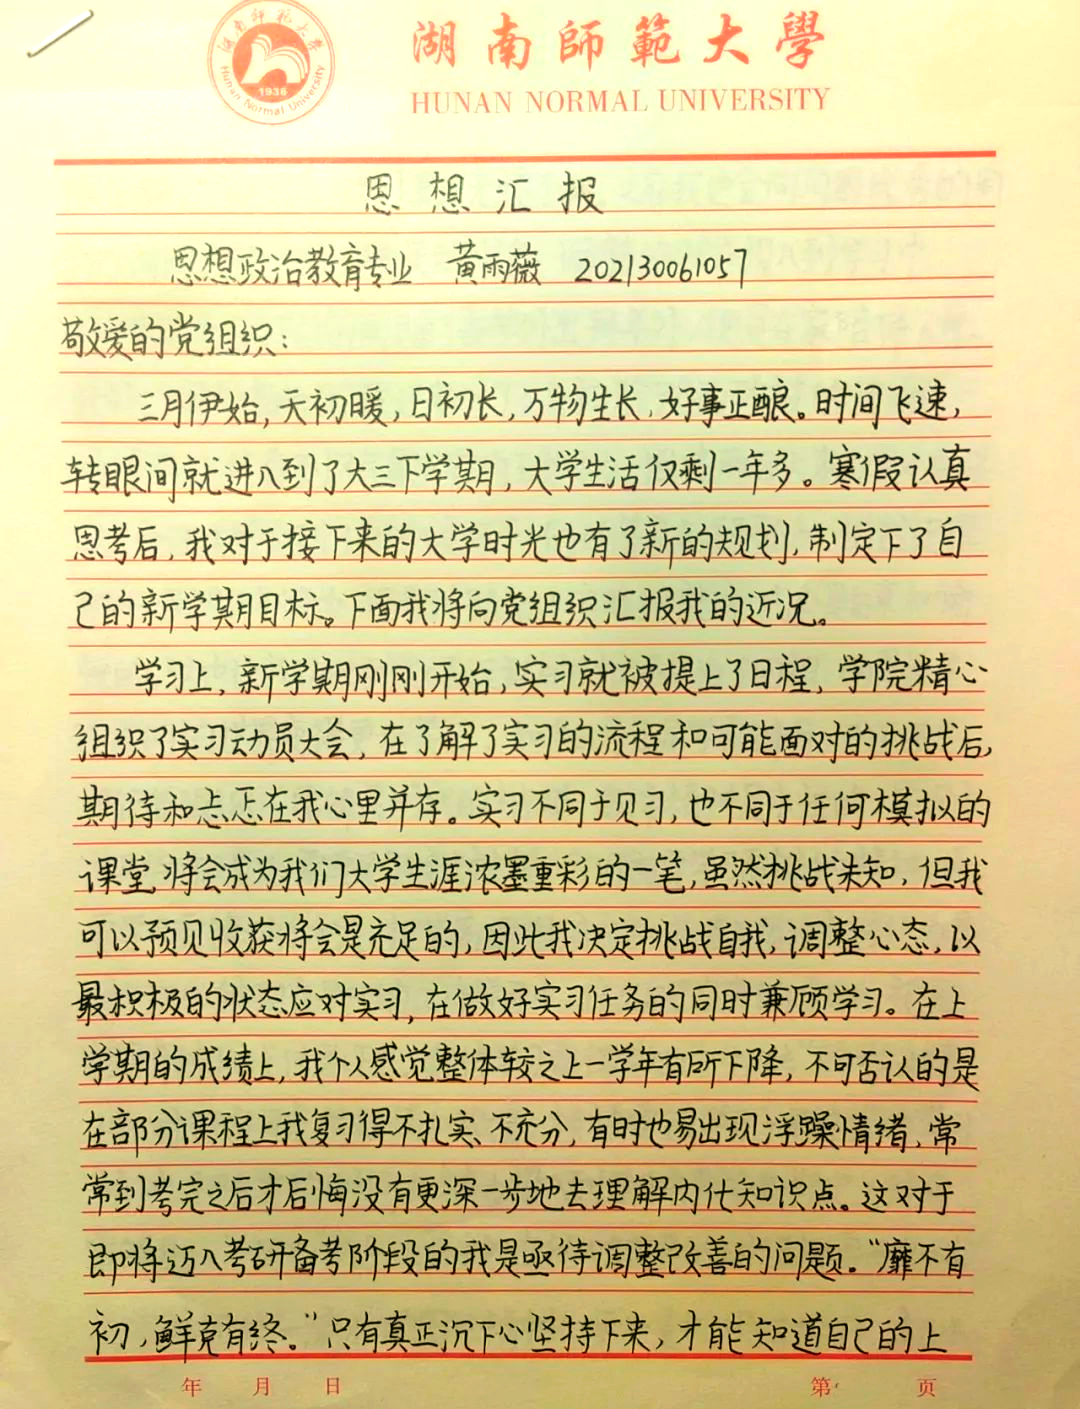 湖南师范大学
Hunan Normal University
1938
湖南師範大學
HUNAN NORMAL UNIVERSITY
思想汇报
思想政治教育专业 黄雨薇 202130061057
敬爱的党组织:
三月伊始,天初暖,日初长,万物生长,好事正酿。时间飞速,
转眼间就进入到了大三下学期,大学生活仅剩一年多。寒假认真
思考后,我对于接下来的大学时光也有了新的规划,制定下了自
己的新学期目标。下面我将向党组织汇报我的近况。
学习上,新学期刚刚开始,实习就被提上了日程,学院精心
组织了实习动员大会,在了解了实习的流程和可能面对的挑战后,
期待和忐忑在我心里并存。实习不同于见习,也不同于任何模拟的
课堂,将会成为我们大学生涯浓墨重彩的一笔,虽然挑战未知,但我
可以预见收获将会是充足的,因此我决定挑战自我,调整心态,以
最积极的状态应对实习,在做好实习任务的同时兼顾学习。在上
学期的成绩上,我个人感觉整体较之上一学年有所下降,不可否认的是
在部分课程上我复习得不扎实、不充分,有时也易出现浮躁情绪,常
常到考完之后才后悔没有更深一步地去理解内化知识点。这对于
即将迈入考研备考阶段的我是亟待调整改善的问题。“靡不有
初,鲜克有终。”只有真正沉下心坚持下来,才能知道自己的上
年 月 日 第 页